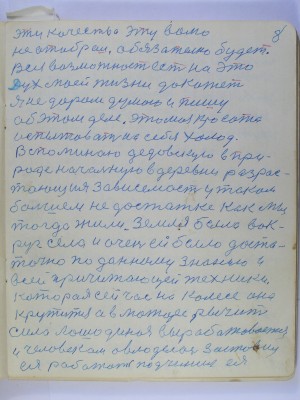 8
эти качества эту само
не отабрал. обязателно будет.
Вся возможност ест на это
Дух маей жизни докажет
я не даром думаю и пишу
аб этом деле. Это моя красота
испытоват на себя холод.
Вспоминаю дедовскую в при-
роде началную в деревни разрас-
тающия зависемост у таком
болшем не достатке как мы
тогда жили. Земля была вок-
руг села и очен ей было доста-
точно по данному знанию и
всей причитающей техники.
которая сейчас на колесе она
крутится а в моторе рычит
сила лошодиная вырабатовается
и человеком овлодела заставил
ея работат подчинил ея